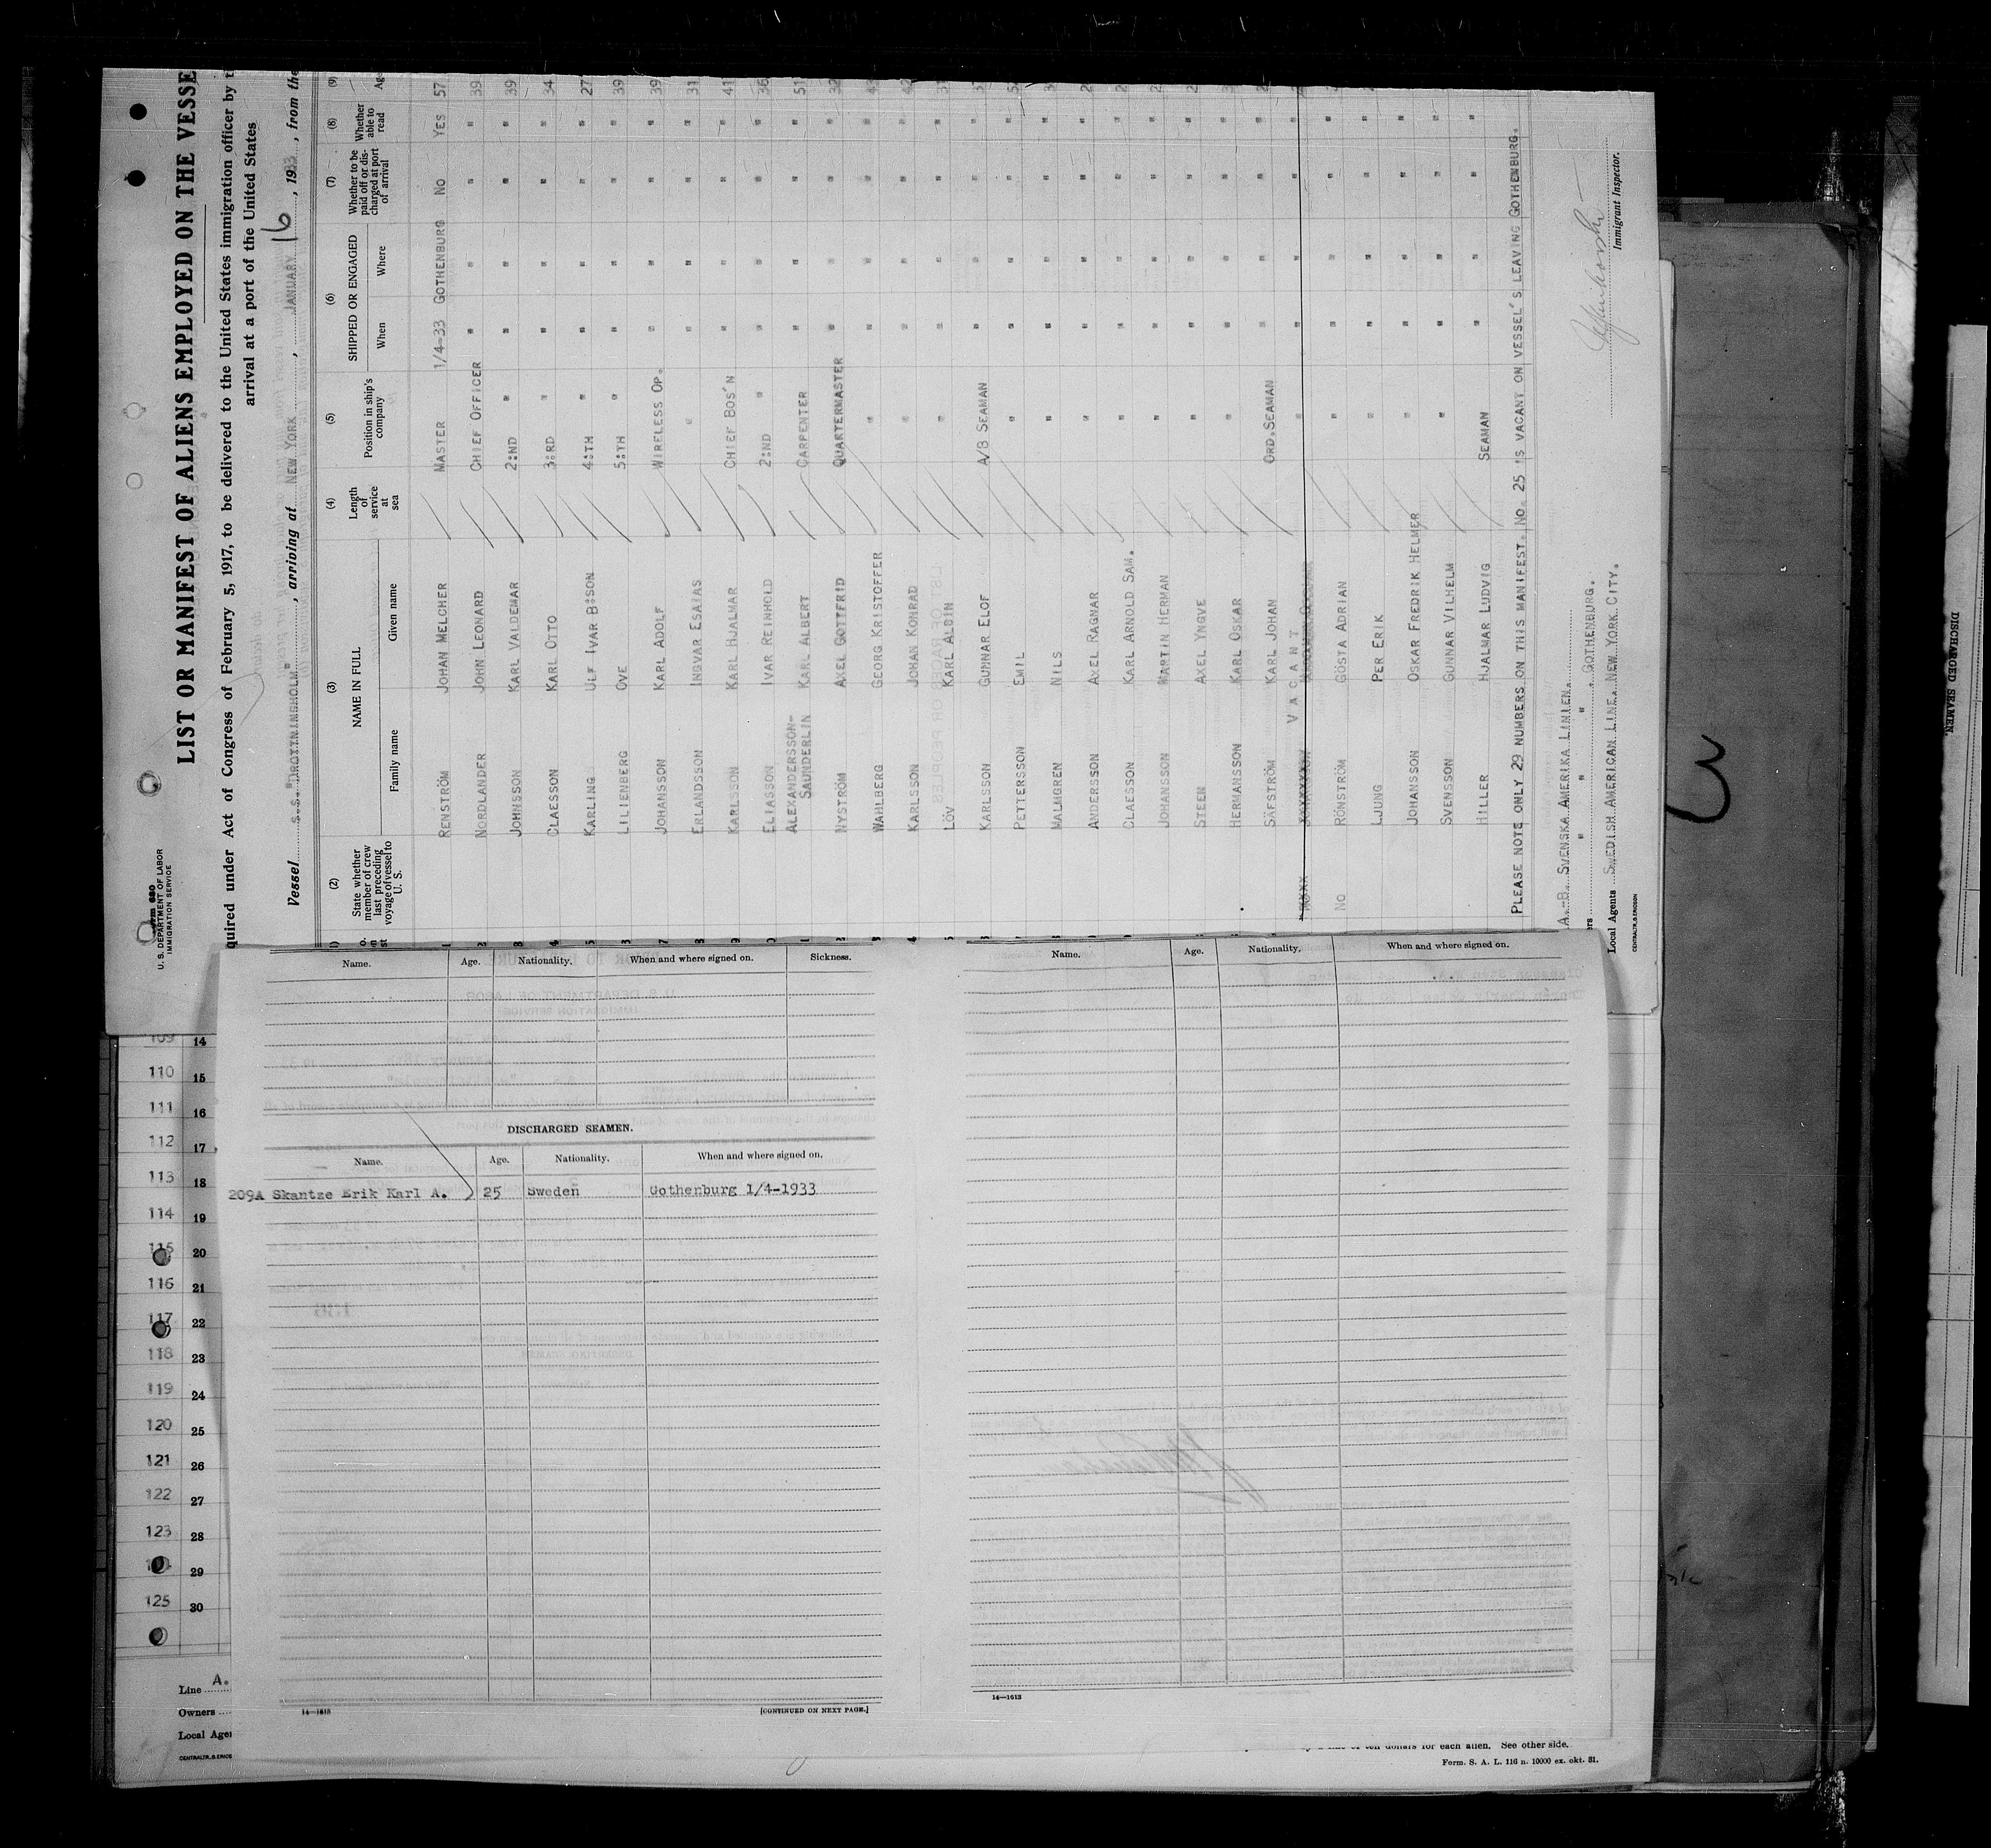 Form 680
U. S. DEPARTMENT OF LABOR
IMMIGRATION SERVICE
LIST OR MANIFEST OF ALIENS EMPLOYED ON THE VESSE
quired under Act of Congress of February 5, 1917, to be delivered to the United States immigration officer by t
arrival at a port of the United States
Vessel S.S. "DROTTNINGHOLM", arriving at NEW YORK, JANUARY 16, 1933, from the
(2) (3) (4) (5) (6) (7) (8) (9)
State whether member of crew last preceding voyage of vessel to U. S.
NAME IN FULL
Family name Given name
Length of service at sea
Position in ship's company
SHIPPED OR ENGAGED
When Where
Whether to be paid off or discharged at port of arrival
Whether able to read
Ag
1 RENSTRÖM JOHAN MELCHER MASTER 1/4-33 GOTHENBURG NO YES 57
2 NORDLANDER JOHN LEONARD CHIEF OFFICER " " " " 39
3 JOHNSSON KARL VALDEMAR 2:ND " " " " " 39
4 CLAESSON KARL OTTO 3:RD " " " " " 34
5 KARLING ULF IVAR B:SON 4:TH " " " " " 27
LILIENBERG OVE 5:TH " " " " " 39
7 JOHANSSON KARL ADOLF WIRELESS OP. " " " " 39
8 ERLANDSSON INGVAR ESAIAS " " " " " 31
9 KARLSSON KARL HJALMAR CHIEF BOS'N " " " " 41
0 ELIASSON IVAR REINHOLD 2:ND " " " " " 36
1 ALEXANDERSSON-
SAUNDERLIN KARL ALBERT CARPENTER " " " " 51
2 NYSTRÖM AXEL GOTTFRID QUARTERMASTER " " " " 32
3 WAHLBERG GEORG KRISTOFFER " " " " "
4 KARLSSON JOHAN KONRAD " " " " " 42
5 LÖV KARL ALBIN " " " " " 31
6 KARLSSON GUNNAR ELOF A/B SEAMAN " " " "
PETTERSSON EMIL " " " " "
MALMGREN NILS " " " " "
ANDERSSON AXEL RAGNAR " " " " "
CLAESSON KARL ARNOLD SAM. " " " " "
JOHANSSON MARTIN HERMAN " " " " "
STEEN AXEL YNGVE " " " " "
HERMANSSON KARL OSKAR " " " " "
SÄFSTRÖM KARL JOHAN ORD.SEAMAN " " " "
VACANT
NO RÖNSTRÖM GÖSTA ADRIAN " " " " "
LJUNG PER ERIK " " " " "
JOHANSSON OSKAR FREDRIK HELMER " " " " "
SVENSSON GUNNAR VILHELM " " " " "
HILLER HJALMAR LUDVIG SEAMAN " " " "
PLEASE NOTE ONLY 29 NUMBERS ON THIS MANIFEST. NO. 25 IS VACANT ON VESSEL'S LEAVING GOTHENBURG.
A.-B. SVENSKA AMERIKA LINIEN.
ers " " " , GOTHENBURG.
Local Agents SWEDISH AMERICAN LINE, NEW YORK CITY.
Immigrant Inspector.
CENTRALTR.G.ERICSON
Name. Age. Nationality. When and where signed on. Sickness.
DISCHARGED SEAMEN.
Name. Age. Nationality. When and where signed on.
209A Skantze Erik Karl A. 25 Sweden Gothenburg 1/4-1933
14—1613
[CONTINUED ON NEXT PAGE.]
Name. Age. Nationality. When and where signed on.
14—1613
109 14
110 15
111 16
112 17
113 18
114 19
115 20
116 21
117 22
118 23
119 24
120 25
121 26
122 27
123 28
29
125 30
Line A.
Owners
Local Age
CENTRALTR.G.ERICS
ten dollars for each alien. See other side.
Form. S. A. L. 116 n. 10000 ex. okt. 31.
3
DISCHARGED SEAMEN.